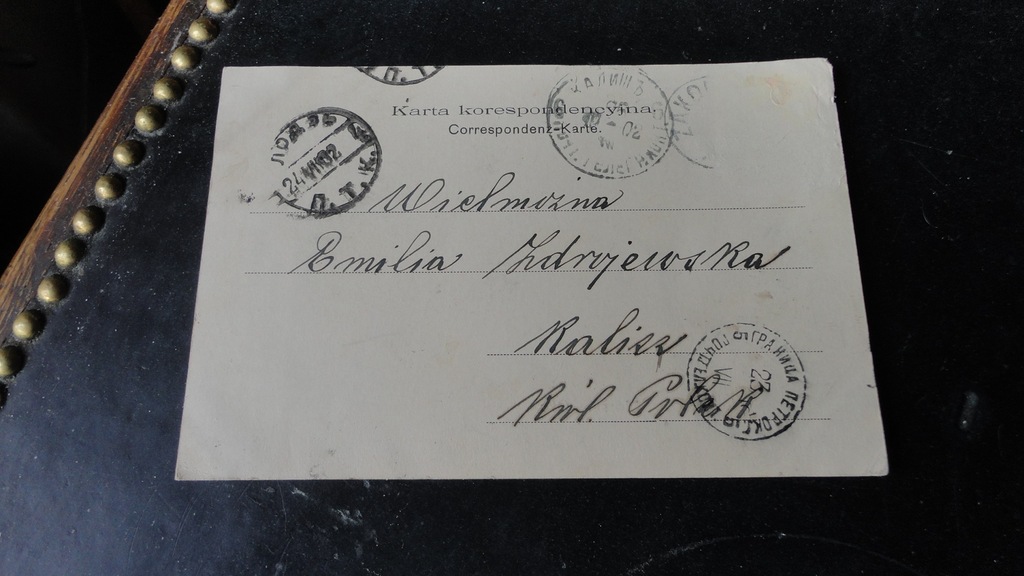 П. Т.
Karta korespondencyjna.
Correspondenz-Karte.
КАЛИШЪ
02
ZAKO
ЛОДЗЬ
24 VII 02
П. Т. К.
Wielmożna
Emilia Zdrojewska
Kalisz
Król. Polsk.
ГРАНИЦА ПЕТРОК.
23
VII